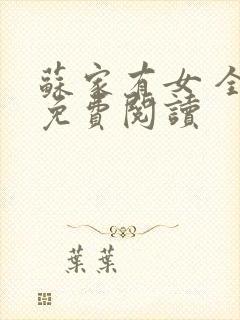 蘇家有女 全
免費閱讀
葉葉